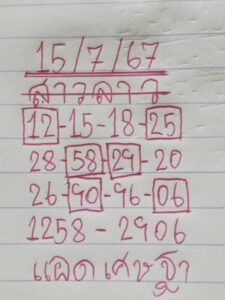 15/7/67
สาวลาว
12-15-18-25
28-58-29-20
26-90-96-06
1258-2906
แฝดเศรษฐา